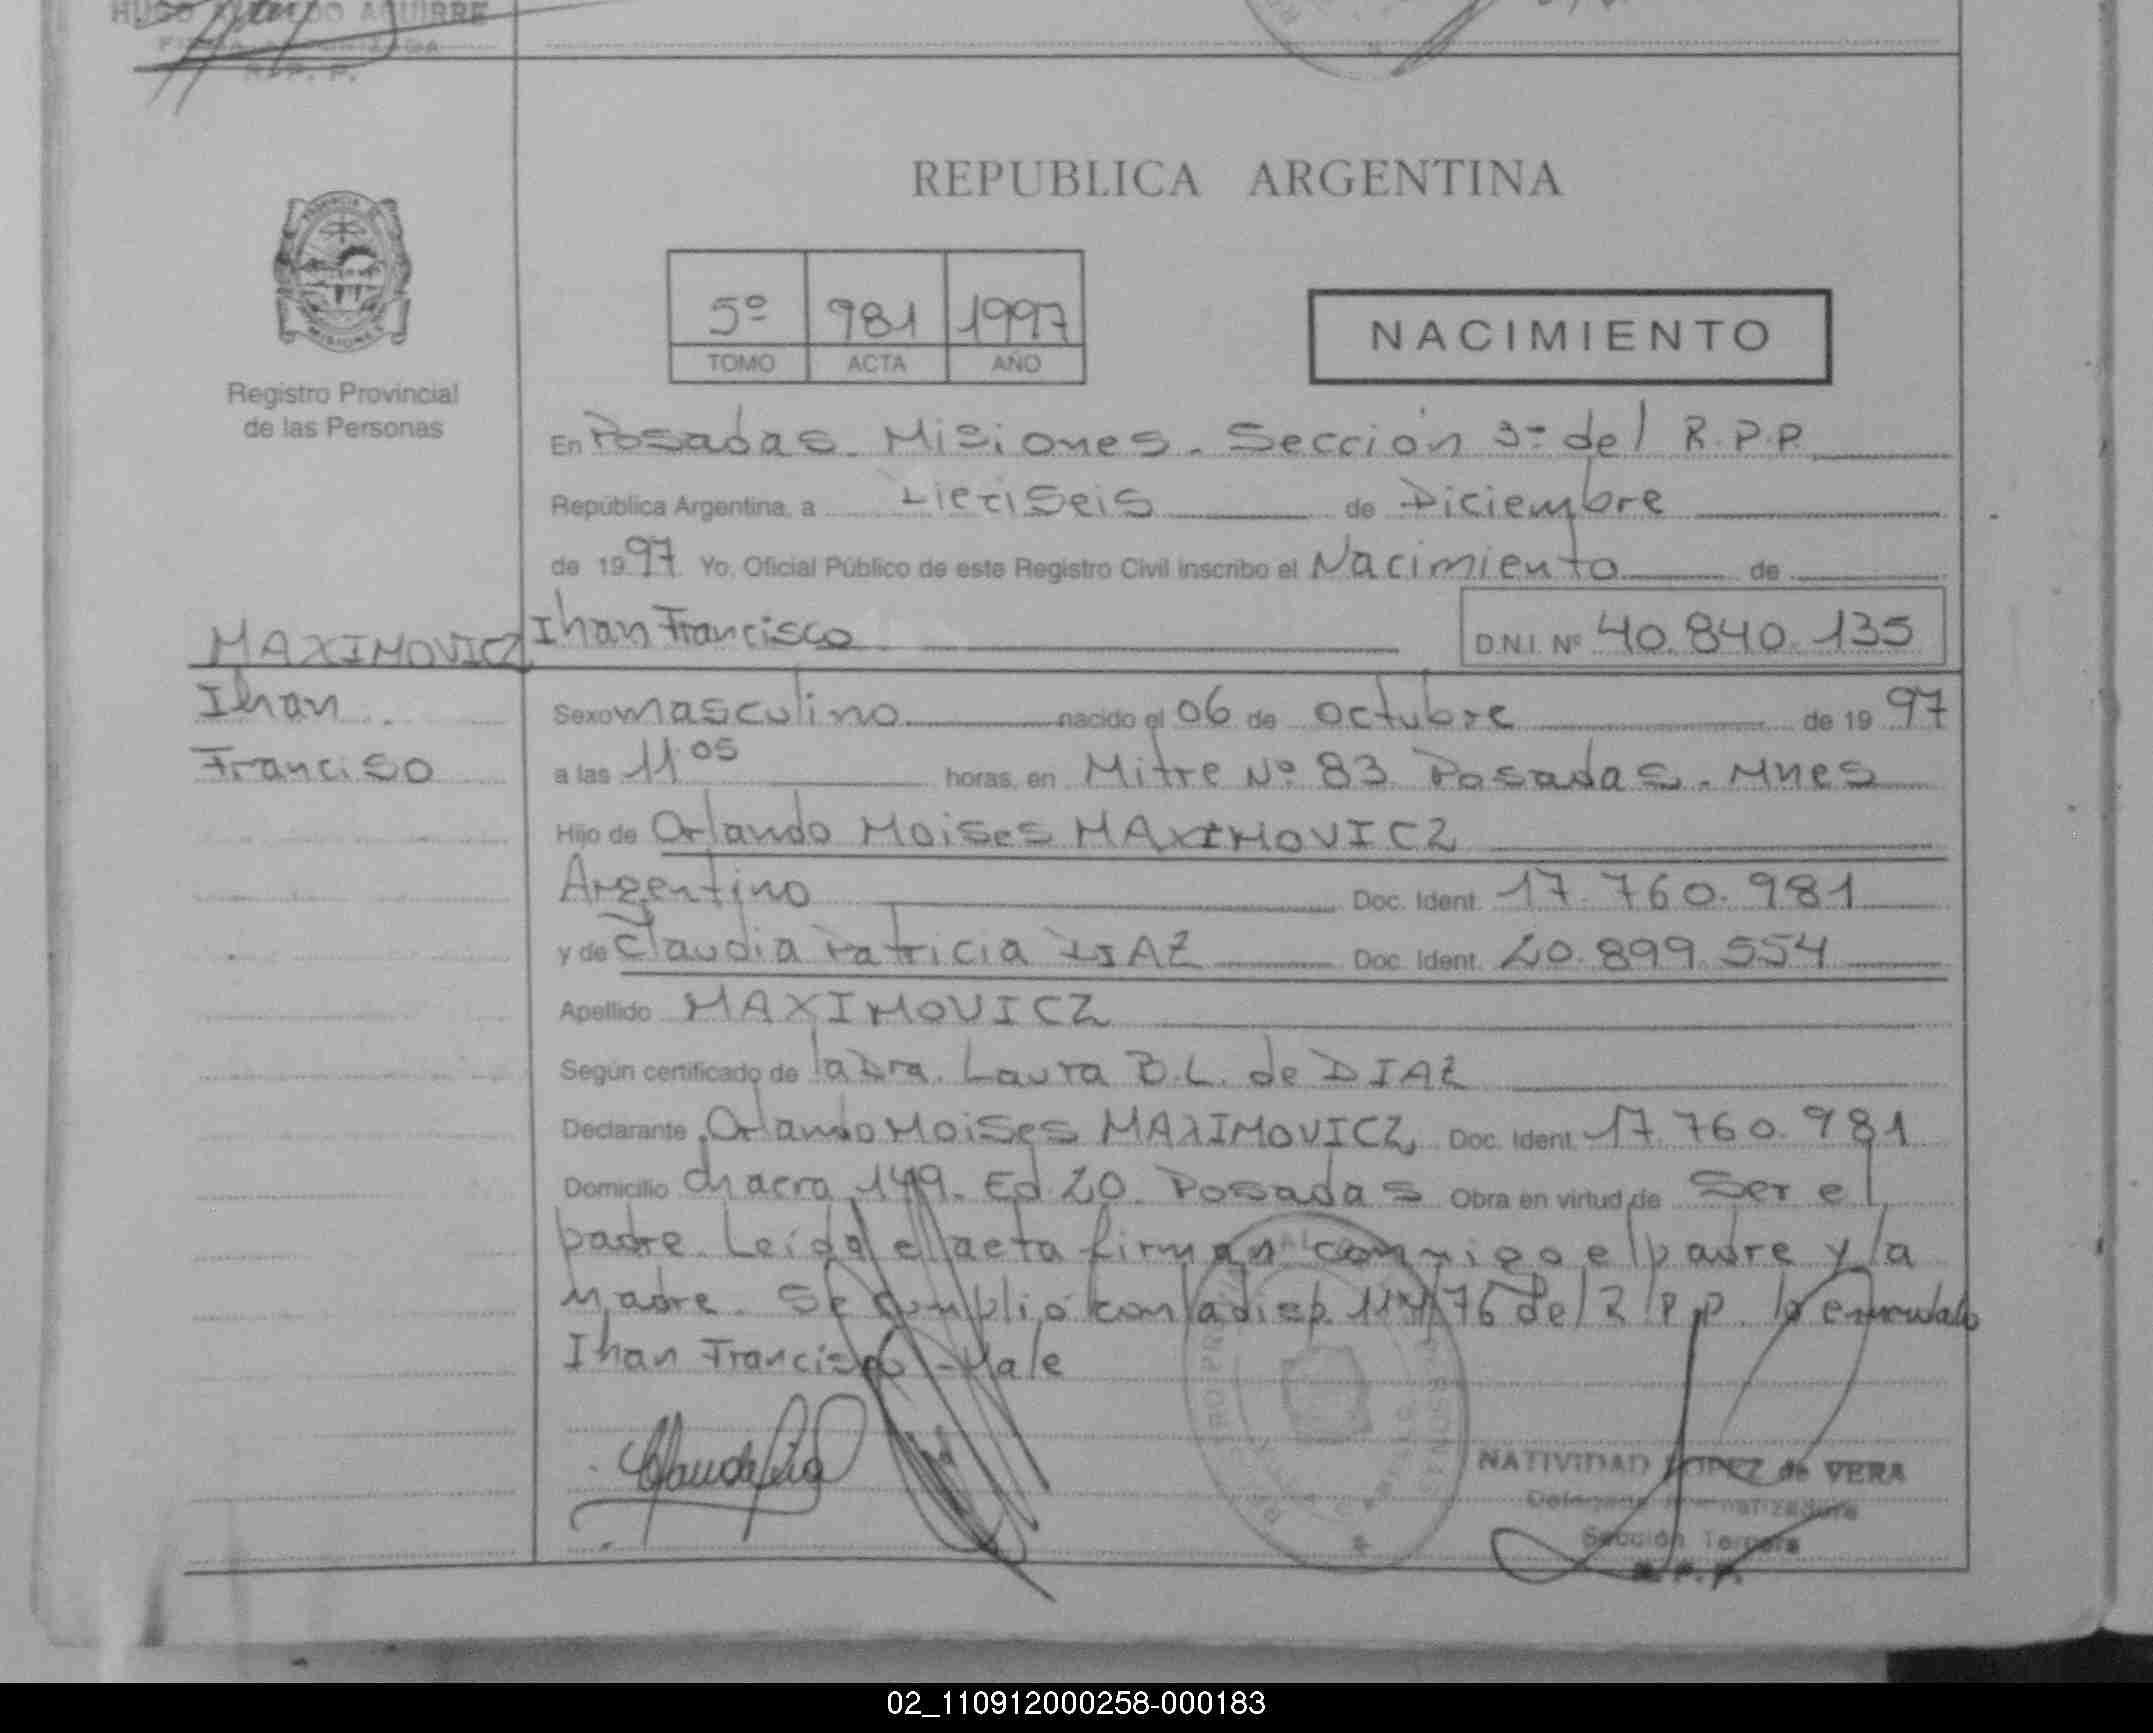 HUGO AGUIRRE
R. P. P.
REPUBLICA ARGENTINA
5º 981 1997
TOMO ACTA AÑO
NACIMIENTO
Registro Provincial
de las Personas
En Posadas. Misiones. Sección 3º del R.P.P.
República Argentina, a Dieciseis de Diciembre
de 1997 Yo, Oficial Público de este Registro Civil inscribo el Nacimiento de
MAXIMOVICZ Ihan Francisco D.N.I. Nº 40.840.135
Ihan
Franciso
Sexo masculino nacido el 06 de octubre de 1997
a las 11.05 horas, en Mitre Nº 83 Posadas. Mnes
Hijo de Orlando Moises MAXIMOVICZ
Argentino Doc. Ident. 17.760.981
y de Claudia Patricia Doc. Ident. 20.899.554
Apellido MAXIMOVICZ
Según certificado de la Dra. Laura B.L. de DIAZ
Declarante Orlando Moises MAXIMOVICZ Doc. Ident. 17.760.981
Domicilio Chacra 149. Ed. 20. Posadas Obra en virtud de Ser el
padre. Leída el acta firman conmigo el padre y la
madre. Se cumplió con la disp. /76 del R.P.P. lo enmendado
Ihan Francisco - Vale
NATIVIDAD LOPEZ de VERA
Sección Tercera
R. P. P.
02_110912000258-000183